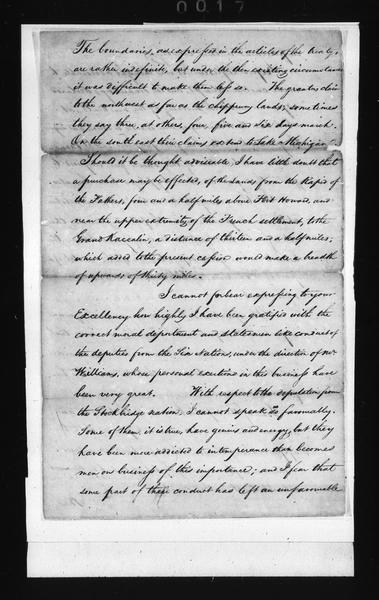 0017
The boundaries, as expressed in the articles of the treaty,
are rather indefinite, but under the then existing circumstances
it was difficult to make them less so. The grantees claim
to the northwest as far as the chippeway lands; sometimes
they say three, at others, four, five and six days march.
On the south east their claims extend to Lake Michigan.
Should it be thought adviseable, I have little doubt that
a purchase may be effected, of the lands from the Rapid of
the Fathers, four and a half miles above Fort Howard, and
near the upper extremity of the French settlement, to the
Grand Kaccalin, a distance of thirteen and a half miles;
which added to the present cession would make a breadth
of upwards of thirty miles.
I cannot forbear expressing to your
Excellency how highly I have been gratified with the
correct moral deportment and statesmen like conduct of
the deputies from the Six Nations, under the direction of Mr
Williams, whose personal exertions in this business have
been very great. With respect to the deputation from
the Stockbridge nation, I cannot speak so favorably.
Some of them, it is true, have genius and energy, but they
have been more addicted to intemperance than becomes
men on business of this importance; and I fear that
some part of their conduct has left an unfavourable